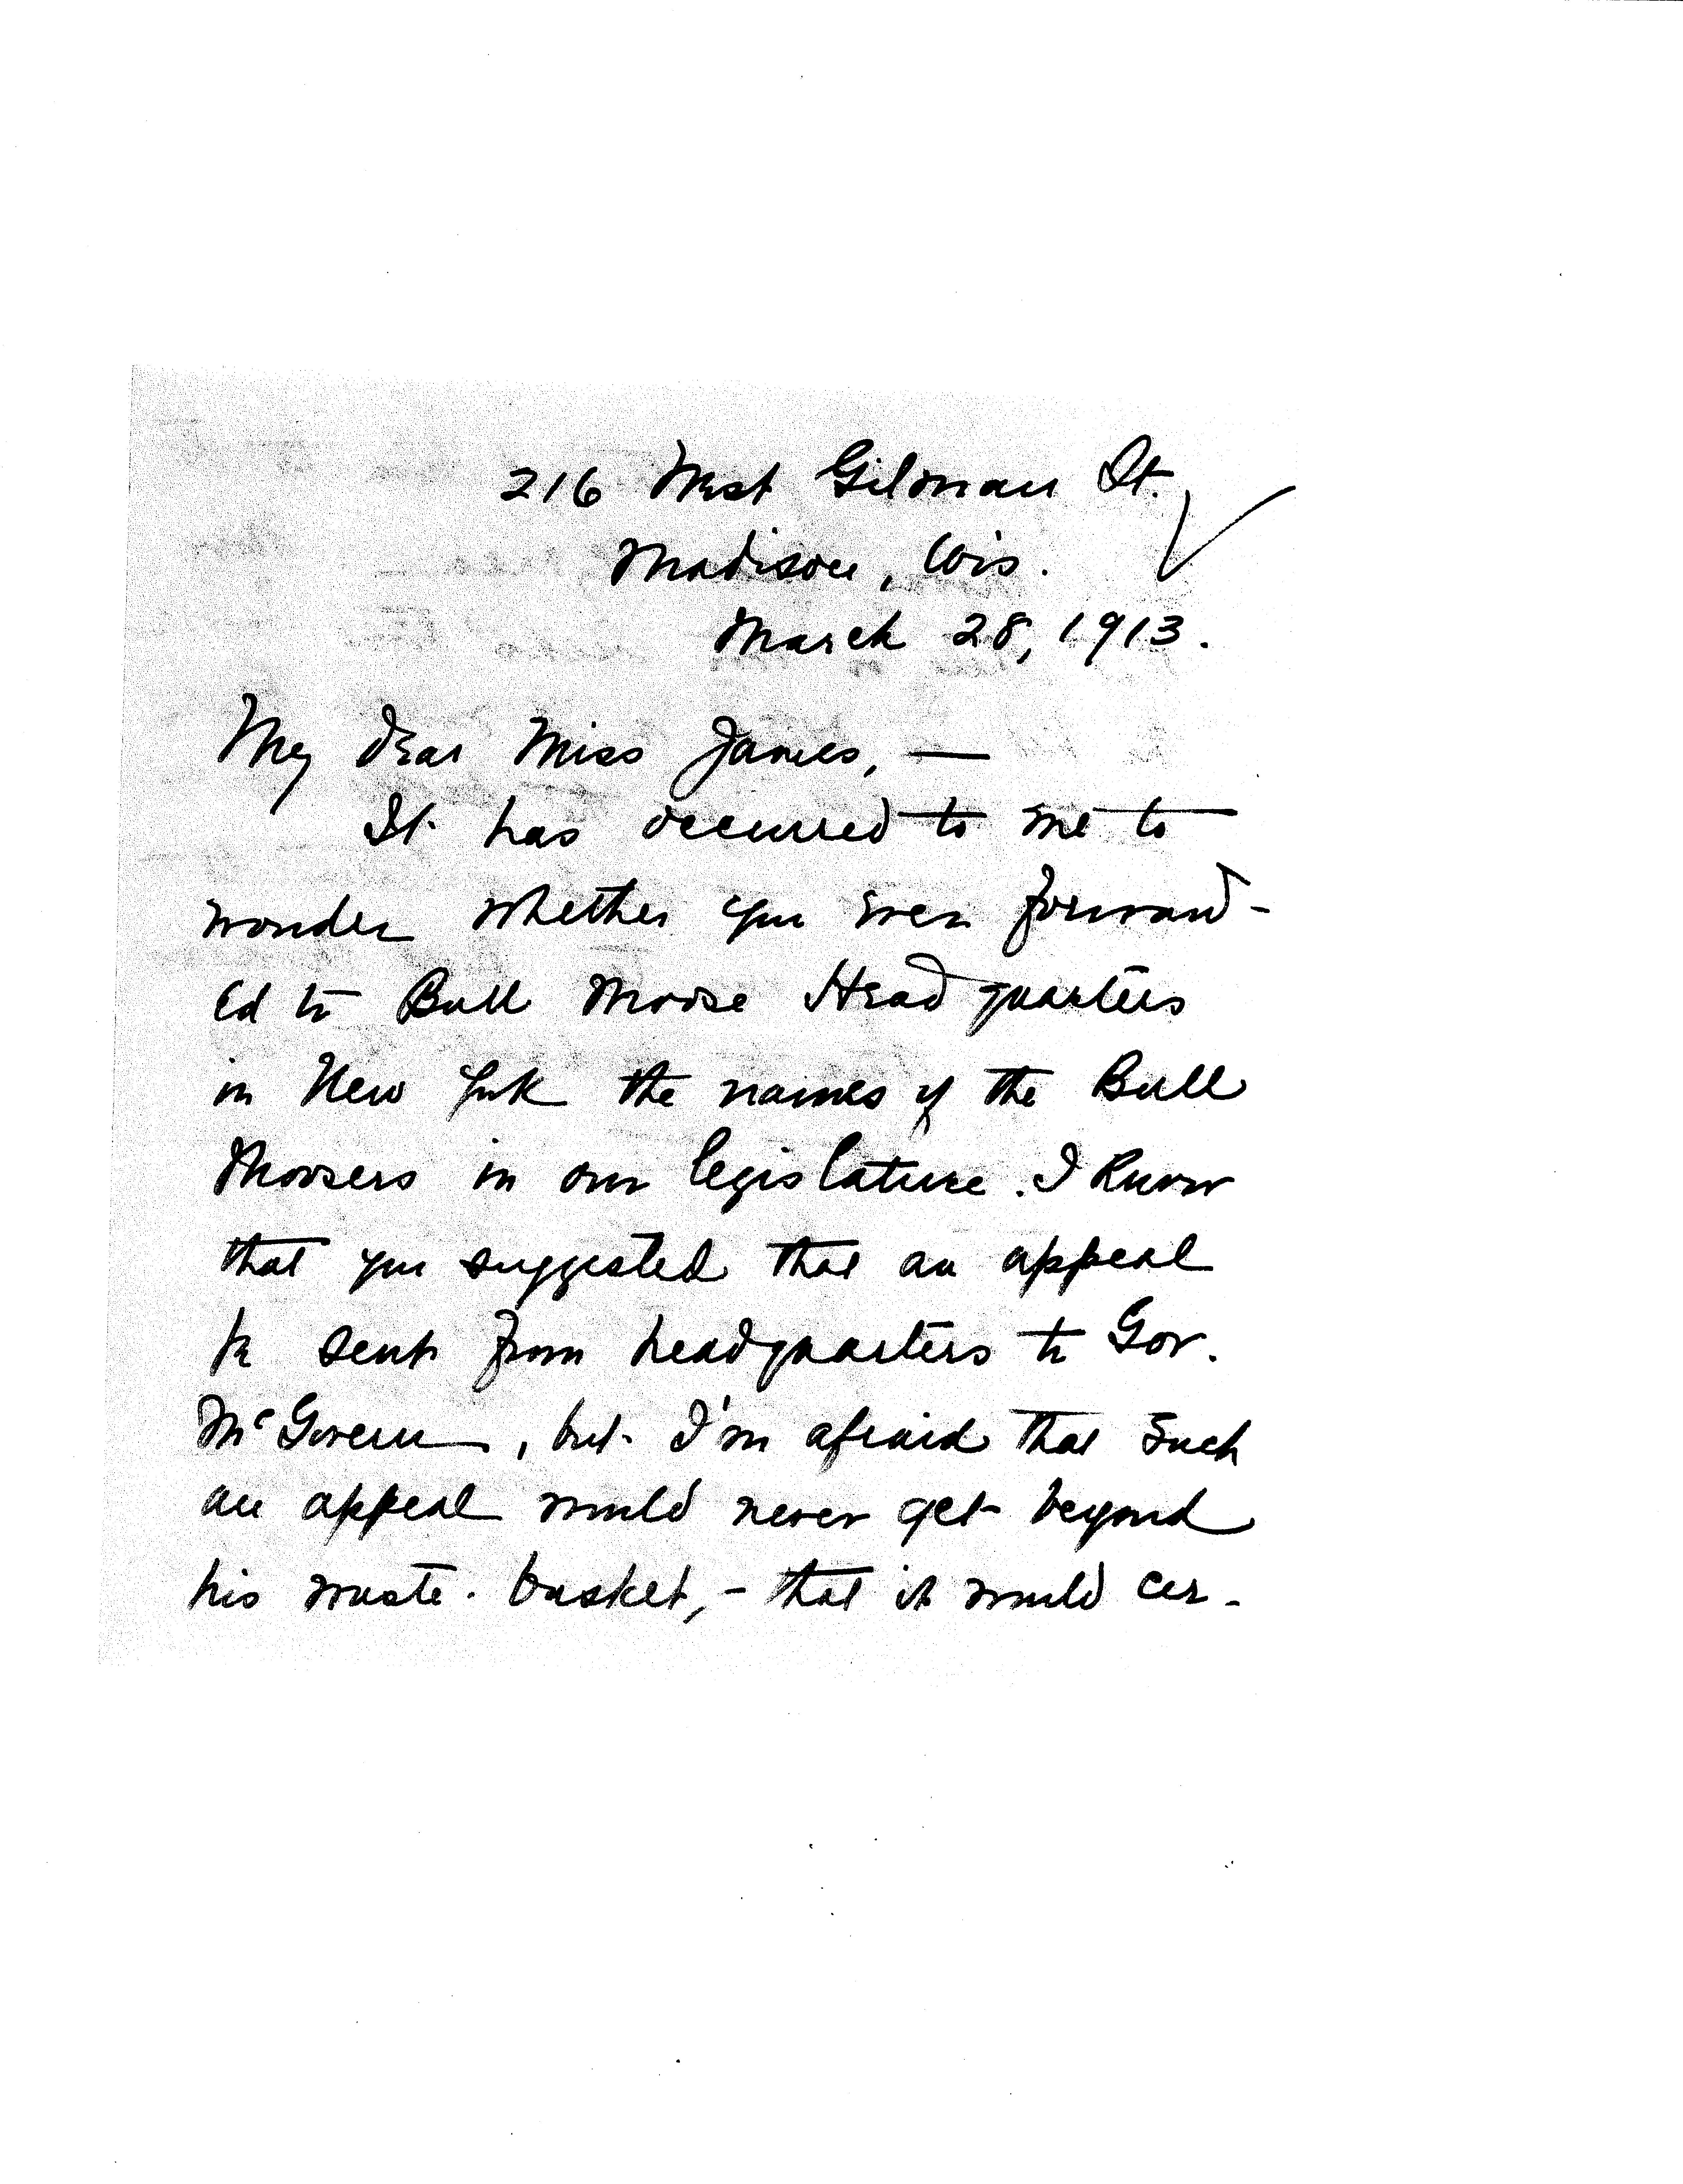 216 West Gilman St.
Madison, Wis.
March 28, 1913.
My dear Miss James, —
It has occurred to me to
wonder whether you ever forward-
ed to Bull Moose Headquarters
in New York the names of the Bull
Moosers in our legislature. I know
that you suggested that an appeal
be sent from headquarters to Gov.
McGovern, but I'm afraid that such
an appeal would never get beyond
his waste-basket, - that it would cer-